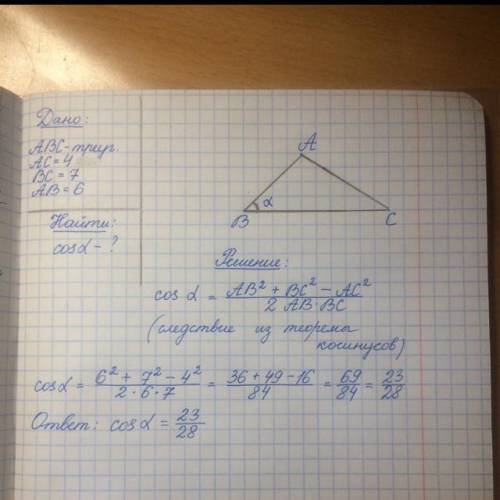 Дано:
ABC-треуг.
AC = 4
BC = 7
AB = 6
Найти:
cosα - ?
A
α
B
C
Решение:
cos α = (AB² + BC² - AC²) / (2 AB·BC)
(следствие из теоремы
косинусов)
cosα = (6² + 7² - 4²) / (2·6·7) = (36 + 49 - 16) / 84 = 69/84 = 23/28
Ответ: cosα = 23/28